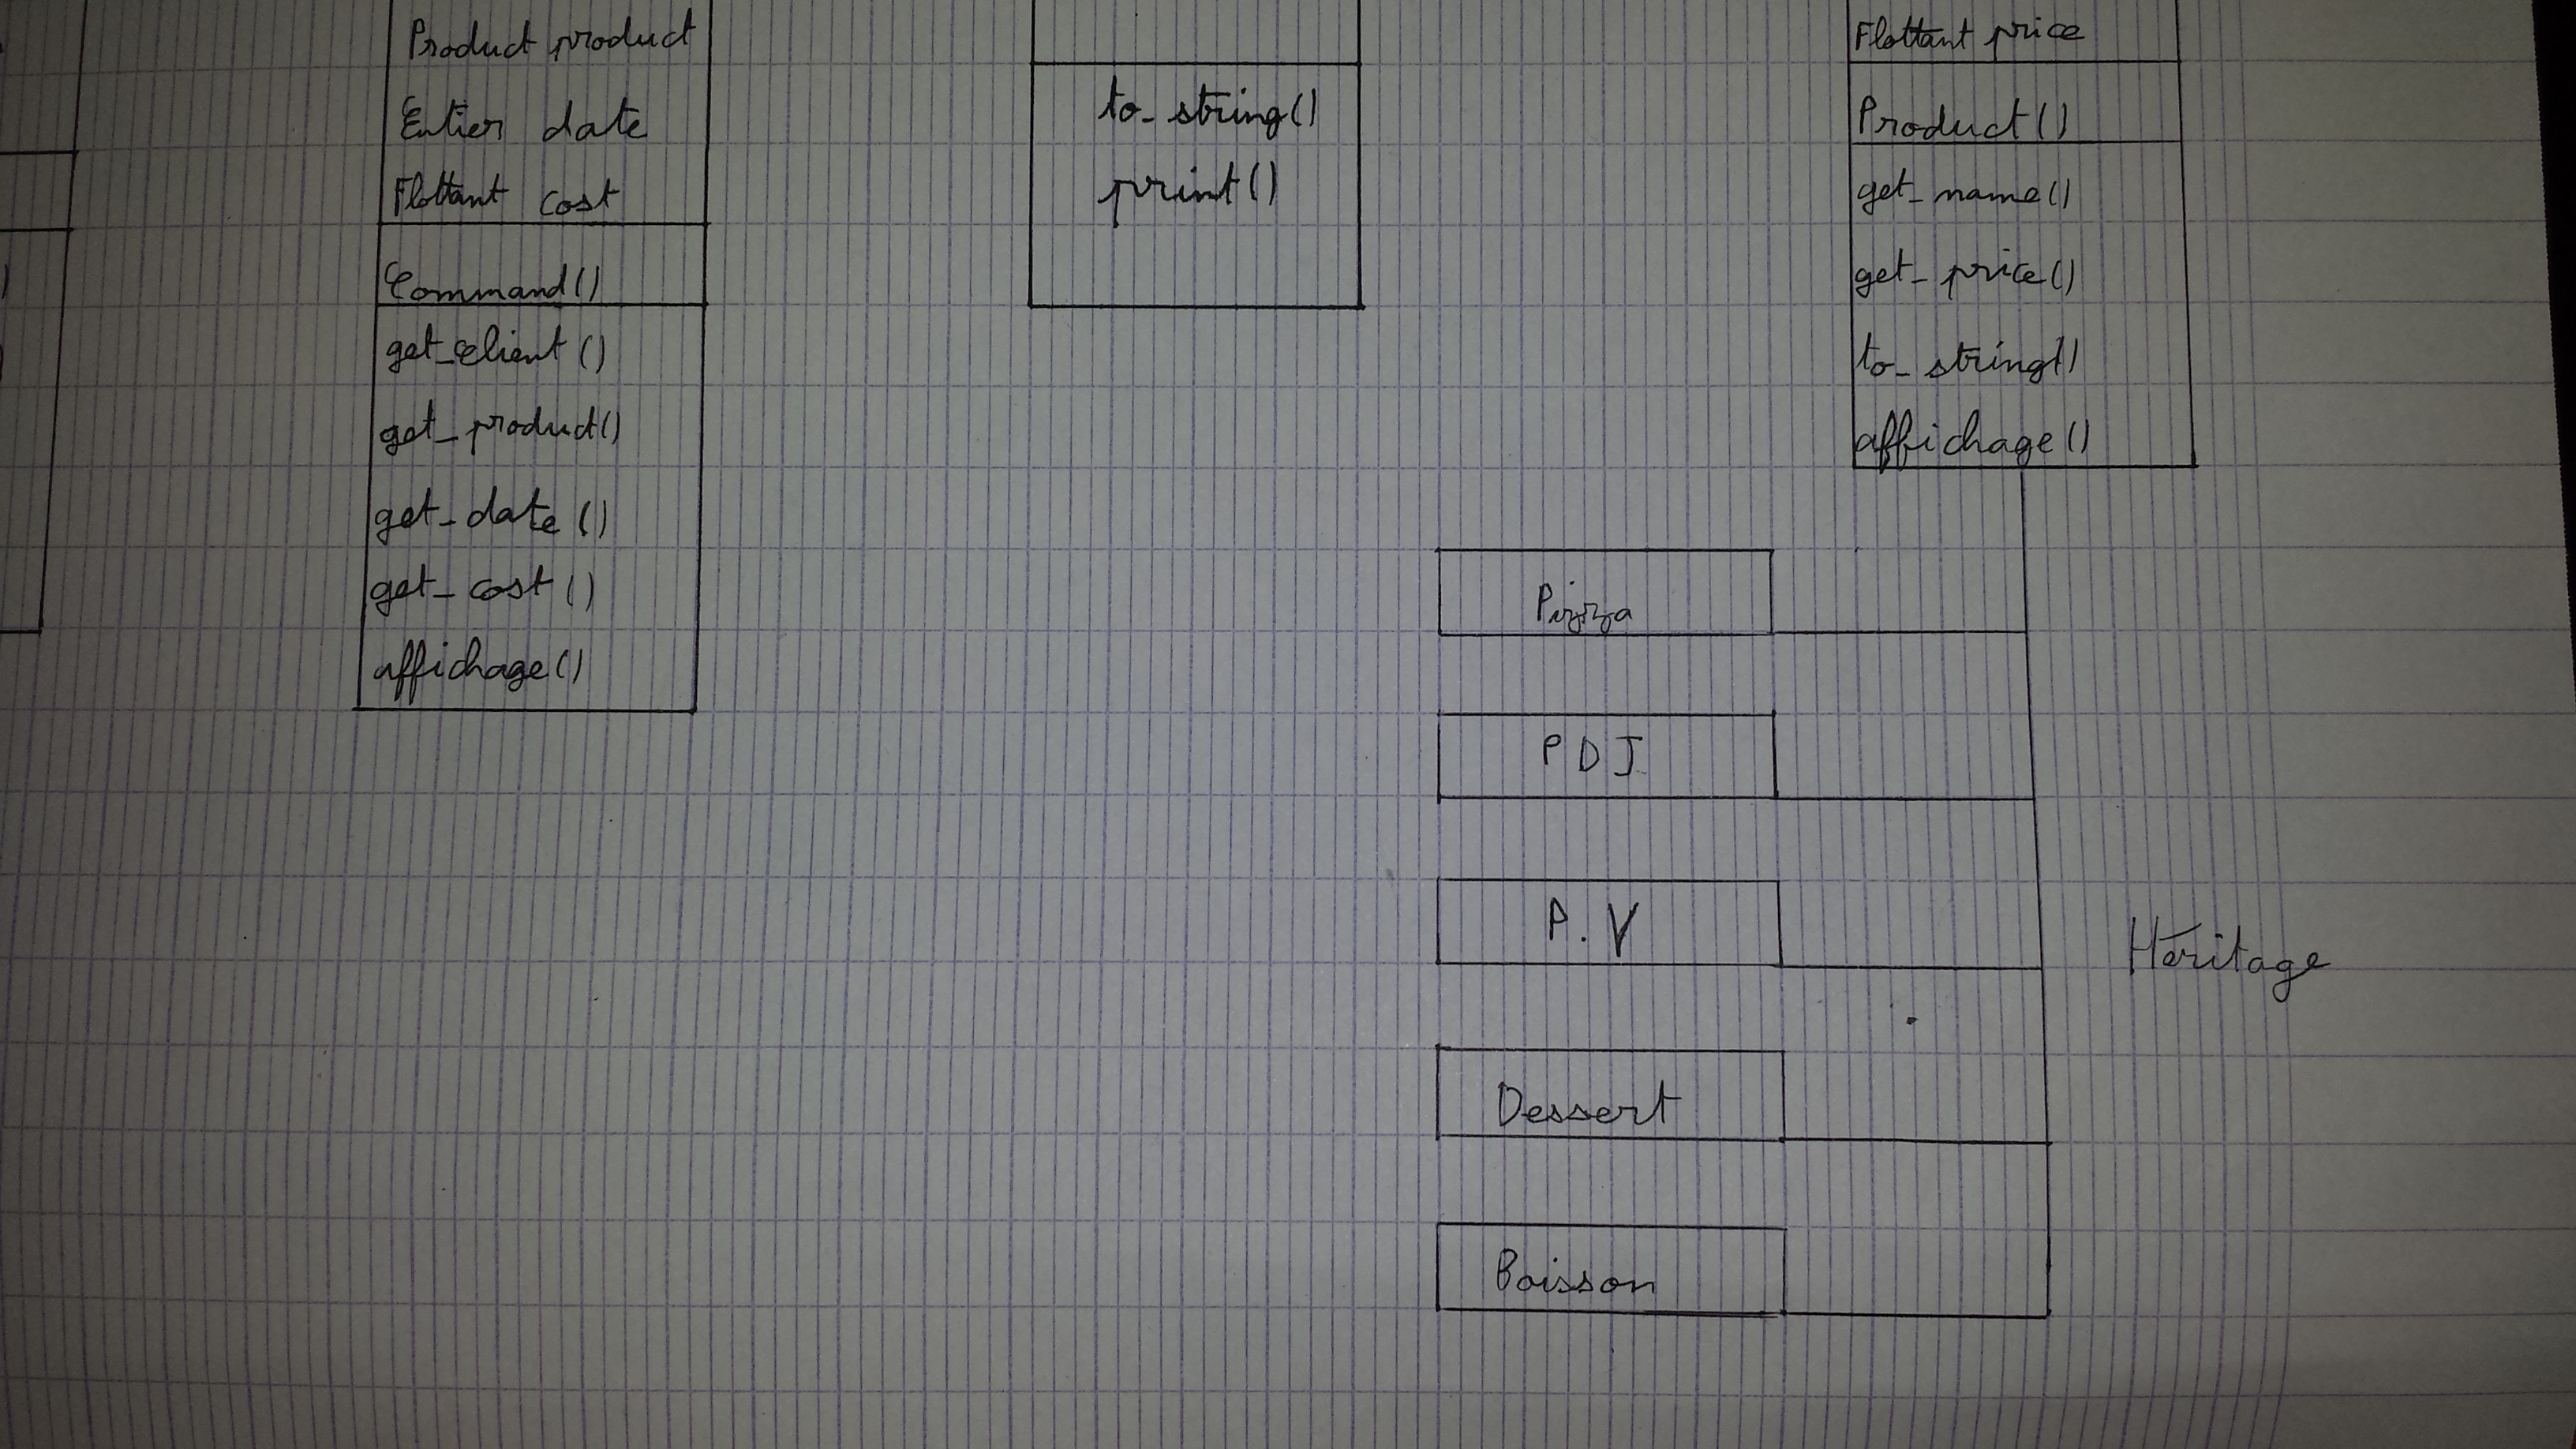 Product product
Entier date
Flottant cost
Command()
get_client()
get_product()
get_date()
get_cost()
affichage()
to_string()
print()
Flottant price
Product()
get_name()
get_price()
to_string()
affichage()
Pizza
PDJ
P.V
Dessert
Boisson
Héritage